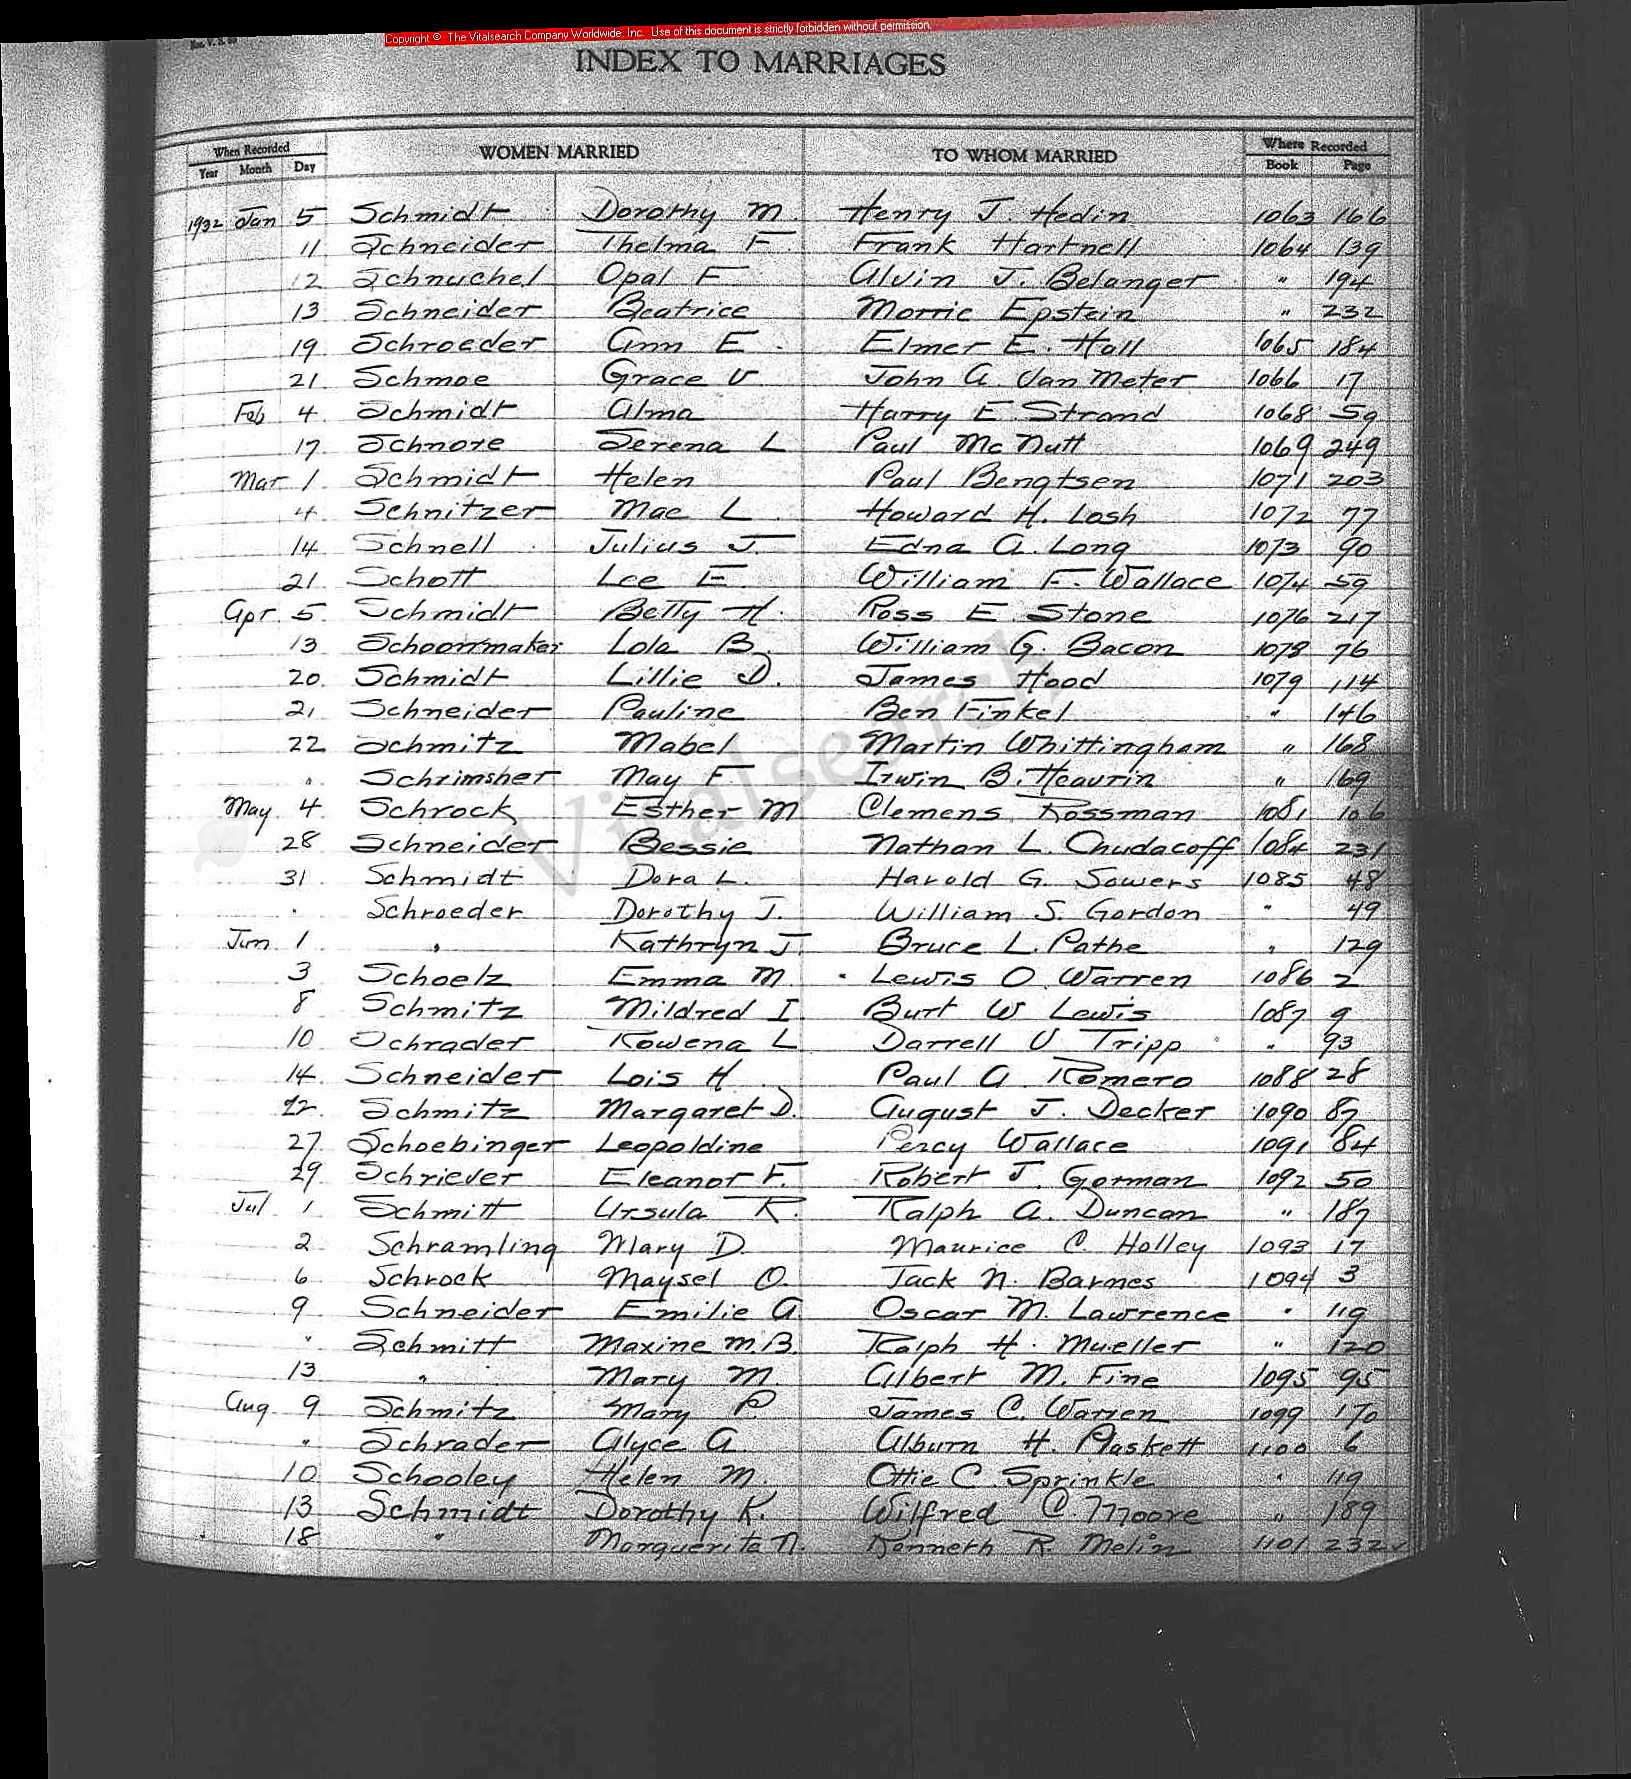 Copyright © The Vitalsearch Company Worldwide, Inc. Use of this document is strictly forbidden without permission.
INDEX TO MARRIAGES
When Recorded WOMEN MARRIED TO WHOM MARRIED Where Recorded
Year Month Day Book Page
1932 Jan 5 Schmidt Dorothy M. Henry J. Hedin 1063 166
11 Schneider Thelma F. Frank Hartnell 1064 139
12 Schnuchel Opal F Alvin J. Belanger " 194
13 Schneider Beatrice Morrie Epstein " 232
19 Schroeder Ann E. Elmer E. Hall 1065 184
21 Schmoe Grace V John A. Van Meter 1066 17
Feb 4 Schmidt Alma Harry E. Strand 1068 59
17 Schnore Serena L Paul McNutt 1069 249
Mar 1 Schmidt Helen Paul Bengtsen 1071 203
4 Schnitzer Mae L. Howard H. Losh 1072 77
14 Schnell Julius J. Edna A. Long 1073 90
21 Schott Lee E. William F. Wallace 1074 59
Apr 5 Schmidt Betty H. Ross E Stone 1076 217
13 Schoonmaker Lola B. William G. Bacon 1078 76
20 Schmidt Lillie D. James Hood 1079 114
21 Schneider Pauline Ben Finkel " 146
22 Schmitz Mabel Martin Whittingham " 168
" Schrimsher May F. Irwin B. Heavrin " 169
May 4 Schrock Esther M Clemens Rossman 1081 106
28 Schneider Bessie Nathan L. Chudacoff 1084 231
31 Schmidt Dora L. Harold G. Sowers 1085 48
" Schroeder Dorothy J. William S. Gordon " 49
Jun 1 " Kathryn J. Bruce L. Pathe " 129
3 Schoelz Emma M. Lewis O. Warren 1086 2
8 Schmitz Mildred I Burt W Lewis 1087 9
10 Schrader Rowena L Darrell V Tripp " 93
14 Schneider Lois H. Paul A. Romero 1088 28
22 Schmitz Margaret D. August J. Decker 1090 87
27 Schoebinger Leopoldine Percy Wallace 1091 84
29 Schriever Eleanor F. Robert J. Gorman 1092 50
Jul 1 Schmitt Ursula R. Ralph A. Duncan " 187
2 Schramling Mary D. Maurice C. Holley 1093 17
6 Schrock Maysel O. Jack N. Barnes 1094 3
9 Schneider Emilie A. Oscar M. Lawrence " 119
" Schmitt Maxine M.B. Ralph H. Mueller " 120
13 " Mary M. Albert M. Fine 1095 95
Aug 9 Schmitz Mary P. James C. Warren 1099 170
" Schrader Alyce A. Alburn H. Plaskett 1100 6
10 Schooley Helen M. Ottie C. Sprinkle " 119
13 Schmidt Dorothy K. Wilfred C. Moore " 189
18 " Marguerite N. Kenneth R. Melin 1101 232
Vitalsearch